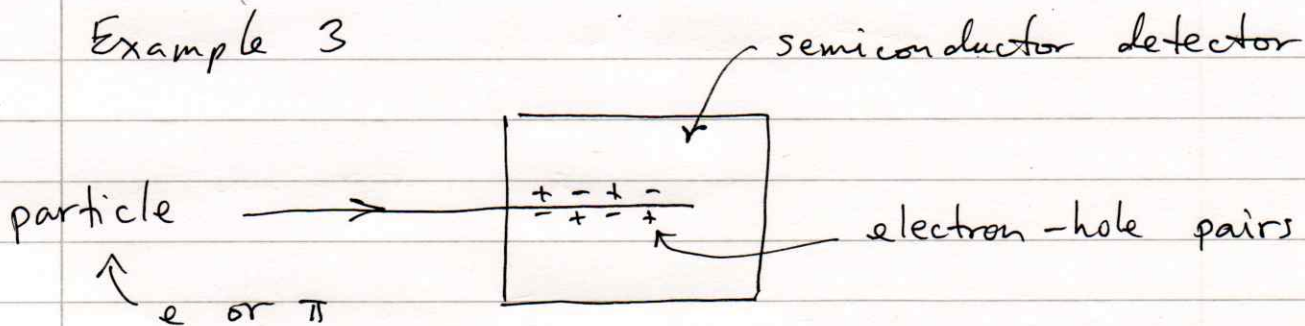 Example 3
semiconductor detector
+ - + -
particle
- + - +
electron-hole pairs
e or π